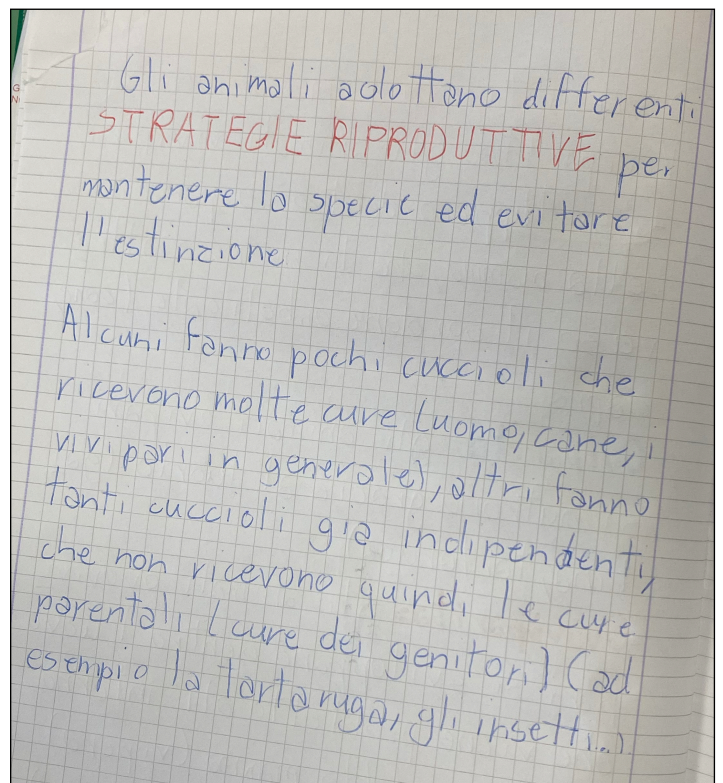 Gli animali adottano differenti
STRATEGIE RIPRODUTTIVE per
mantenere la specie ed evitare
l'estinzione
Alcuni fanno pochi cuccioli che
ricevono molte cure (uomo, cane, i
vivipari in generale), altri fanno
tanti cuccioli già indipendenti,
che non ricevono quindi le cure
parentali (cure dei genitori) (ad
esempio la tartaruga, gli insetti...)